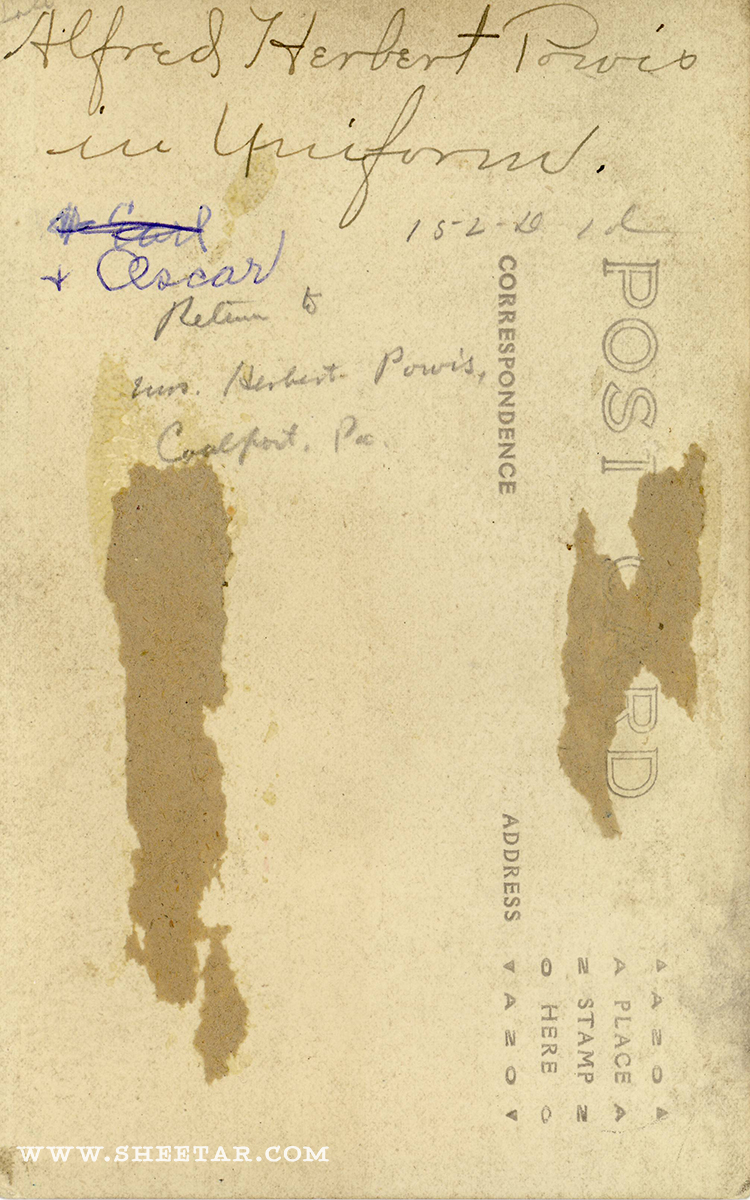 Alfred Herbert Powis
in Uniform.
Carl
+ Oscar
152-D
Return to
Mrs. Herbert Powis,
Coalport, Pa.
POST CARD
CORRESPONDENCE
ADDRESS
PLACE
STAMP
HERE
AZO
AZO
WWW.SHEETAR.COM